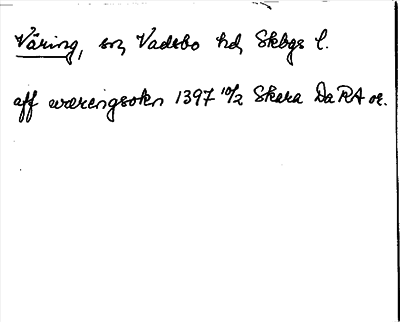 Väring, sn, Vadsbo hd, Skbgs l.
aff wærengsokn 1397 10/2 Skara DaRA or.